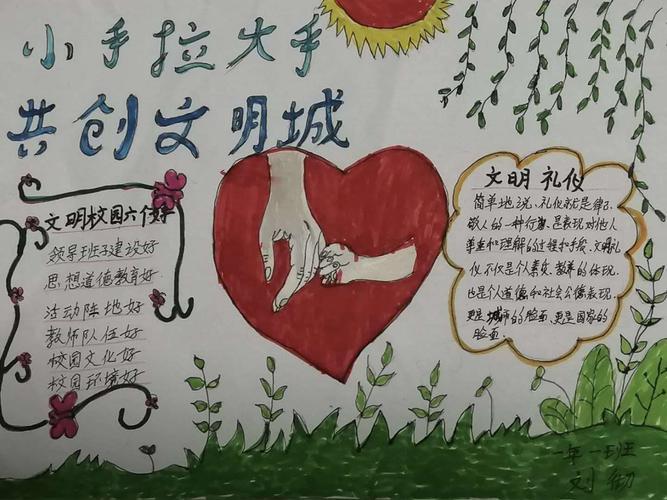 小手拉大手
共创文明城
文明校园六个好
领导班子建设好
思想道德教育好
活动阵地好
教师队伍好
校园文化好
校园环境好
文明礼仪
简单地说,礼仪就是律己、
敬人的一种行为,是表现对他人
尊重和理解的过程和手段,文明礼
仪不仅是个人素质、教养的体现,
也是个人道德和社会公德表现,
更是城市的脸面,更是国家的
脸面
一年一班
刘